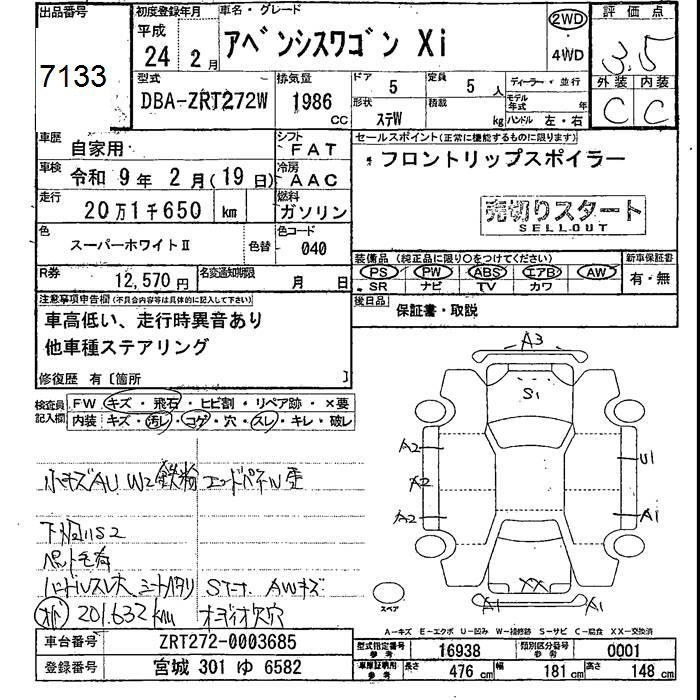 出品番号
7133
初度登録年月
平成
24 2月
車名・グレード
アベンシスワゴン Xi
2WD
4WD
評価点
3.5
外装 内装
C C
型式
DBA-ZRT272W
排気量
1986 CC
ドア 5
定員 5 人
形状 ステW
積載 kg
ディーラー・並行
モデル年式 年
ハンドル 左・右
車歴
自家用
シフト
FAT
車検
令和 9年 2月(19日)
冷房
AAC
走行
20万1千650 km
燃料
ガソリン
色
スーパーホワイトⅡ
色替
色コード
040
R券
12,570円
名変通知期限
月 日
セールスポイント(正常に機能するものに限ります)
フロントリップスポイラー
売切りスタート
SELLOUT
装備品 (純正品に限り○をつけてください)
PS PW ABS エアB AW
SR ナビ TV カワ
新車保証書
有・無
後日品
保証書・取説
注意事項申告欄(不具合内容等は具体的に記入して下さい)
車高低い、走行時異音あり
他車種ステアリング
修復歴 有〔箇所 〕
検査員記入欄
FW キズ・飛石・ヒビ割・リペア跡・×要
内装 キズ・汚レ・コゲ・穴・スレ・キレ・破レ
小キズAU W2 鉄粉
下廻りS2
201,632km
AWキズ
A3
S1
A2
A2
A2
U1
A1
XX
A1
A1
スペア
A-キズ E-エクボ U-凹み W-補修跡 S-サビ C-腐食 XX-交換済
車台番号
ZRT272-0003685
登録番号
宮城 301 ゆ 6582
型式指定番号
参考
16938
類別区分番号
参考
0001
車庫証明用
参考
長さ 476 cm
幅 181 cm
高さ 148 cm